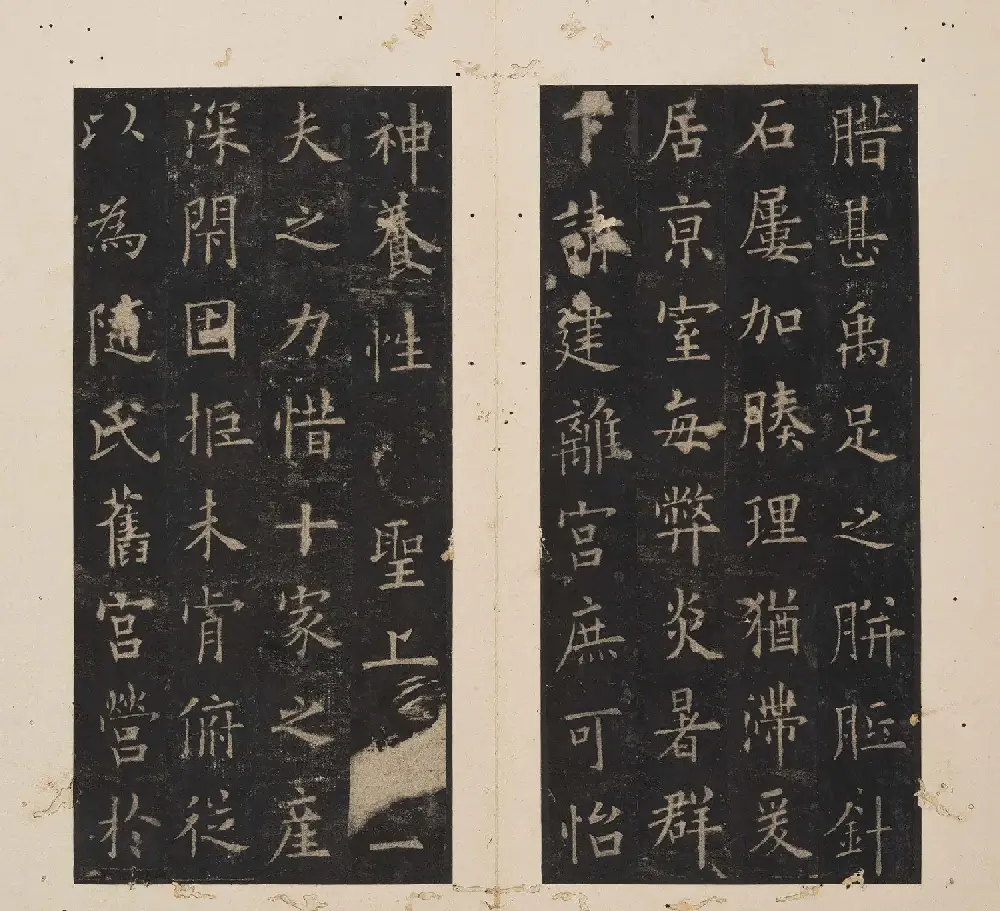 腊甚禹足之胼胝針
石屢加腠理猶滯爰
居京室每弊炎暑群
下請建離宮庶可怡
神養性聖上一
夫之力惜十家之產
深閇固拒未肯俯從
以為隨氏舊宮營於